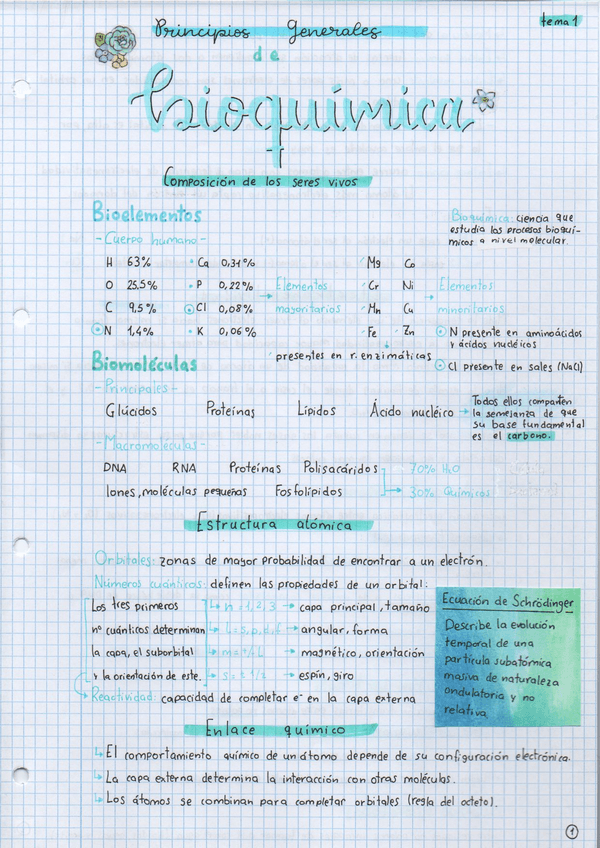 tema 1
Principios Generales
de
bioquímica
Composición de los seres vivos
Bioelementos
- Cuerpo humano -
H 63%
O 25,5%
C 9,5%
N 1,4%
Ca 0,31%
P 0,22%
Cl 0,08%
K 0,06%
→ Elementos
mayoritarios
Mg Co
Cr Ni
Mn Cu
Fe Zn
→ Elementos
minoritarios
presentes en r. enzimáticas
Bioquímica: ciencia que
estudia los procesos bioquí-
micos a nivel molecular.
N presente en aminoácidos
y ácidos nucléicos
Cl presente en sales (NaCl)
Biomoléculas
- Principales -
Glúcidos Proteínas Lípidos Ácido nucléico →
Todos ellos comparten
la semejanza de que
su base fundamental
es el carbono.
- Macromoléculas -
DNA RNA Proteínas Polisacáridos
Iones, moléculas pequeñas Fosfolípidos
70% H₂O
→ 30% Químicos
Estructura atómica
Orbitales: zonas de mayor probabilidad de encontrar a un electrón.
Números cuánticos: definen las propiedades de un orbital:
Los tres primeros
nº cuánticos determinan
la capa, el suborbital
y la orientación de este.
n = 1, 2, 3 → capa principal, tamaño
l = s, p, d, f → angular, forma
m = +/- l → magnético, orientación
s = ± 1/2 → espín, giro
Reactividad: capacidad de completar e⁻ en la capa externa
Ecuación de Schrödinger
Describe la evolución
temporal de una
partícula subatómica
masiva de naturaleza
ondulatoria y no
relativa.
Enlace químico
↳ El comportamiento químico de un átomo depende de su configuración electrónica.
↳ La capa externa determina la interacción con otras moléculas.
↳ Los átomos se combinan para completar orbitales (regla del octeto).
1